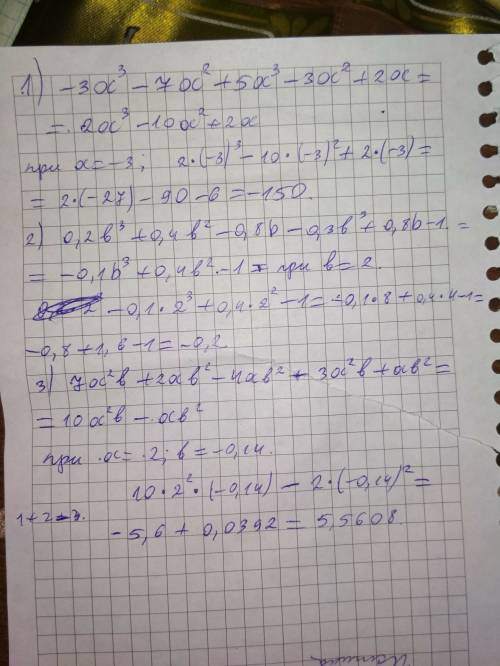 1) -3a³ - 7a² + 5a³ - 3a² + 2a =
= 2a³ - 10a² + 2a
при a = -3; 2·(-3)³ - 10·(-3)² + 2·(-3) =
= 2·(-27) - 90 - 6 = -150.
2) 0,2b³ + 0,4b² - 0,8b - 0,3b³ + 0,8b - 1. =
= -0,1b³ + 0,4b² - 1 при b = 2.
-0,1·2³ + 0,4·2² - 1 = -0,1·8 + 0,4·4 - 1 =
-0,8 + 1,6 - 1 = -0,2
3) 7a²b + 2ab² - 4ab² + 3a²b + ab² =
= 10a²b - ab²
при a = 2; b = -0,14.
10·2²·(-0,14) - 2·(-0,14)² =
1+2=3.
-5,6 + 0,0392 = 5,5608